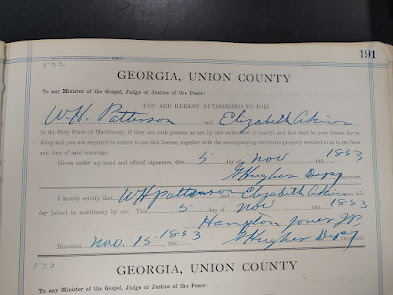 191
572
GEORGIA, UNION COUNTY
To any Minister of the Gospel, Judge or Justice of the Peace:
YOU ARE HEREBY AUTHORIZED TO JOIN
W. H. Patterson and Elizabeth Akins
in the Holy State of Matrimony, if they are such persons as are by law authorized to marry, and this shall be your license for so
doing and you are required to return to me this license, together with the accompanying certificate properly certified to as to the facts
and date of said marriage.
Given under my hand and official signature, this 5 day of Nov 192 1853
G Hughes Depy
I hereby certify that W H Patterson and Elizabeth Akins
day joined in matrimony by me. This 5 day of Nov 192 1853
Hampton Jones J.P.
Recorded Nov. 15. 1853 192 G Hughes Depy
573
GEORGIA, UNION COUNTY
To any Minister of the Gospel, Judge or Justice of the Peace: